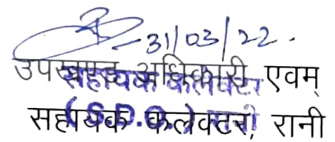 31/03/22.
उपखण्ड अधिकारी एवम्
सहायक कलेक्टर
सहायक कलेक्टर, रानी
(S.D.O.) रानी